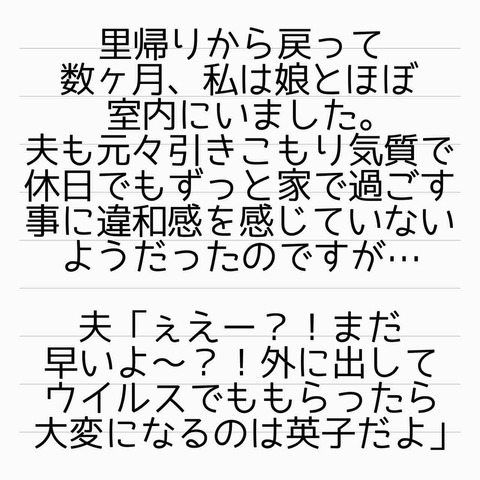 里帰りから戻って
数ヶ月、私は娘とほぼ
室内にいました。
夫も元々引きこもり気質で
休日でもずっと家で過ごす
事に違和感を感じていない
ようだったのですが…
夫「ぇえー？！まだ
早いよ〜？！外に出して
ウイルスでももらったら
大変になるのは英子だよ」